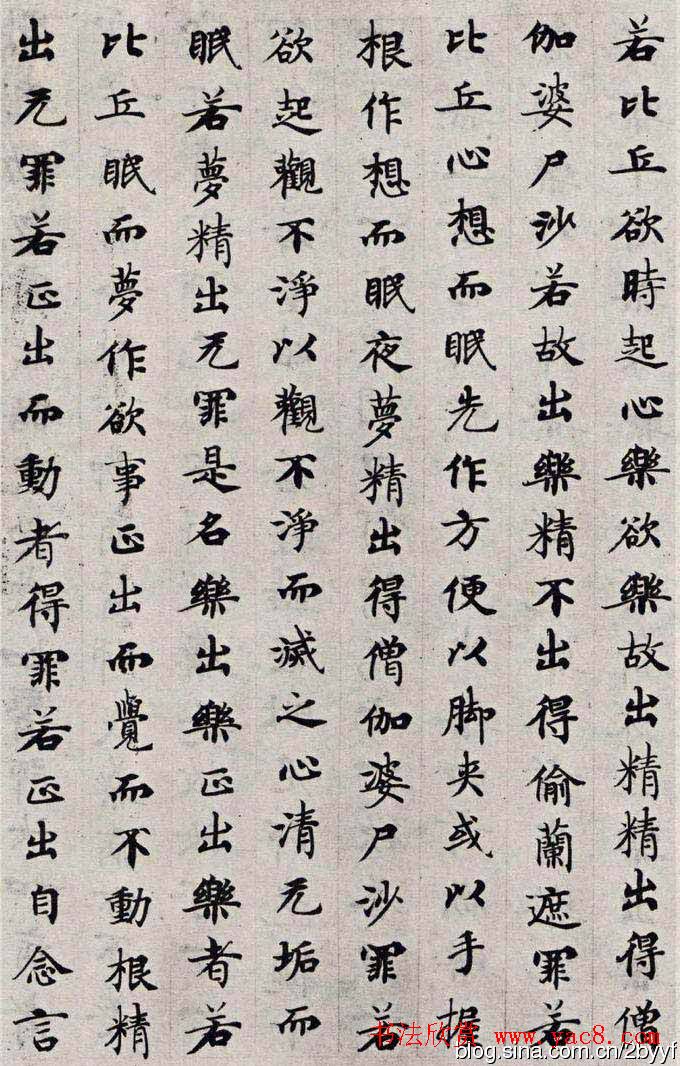 若比丘欲時起心樂欲樂故出精精出得僧
伽婆尸沙若故出樂精不出得偷蘭遮罪若
比丘心想而眠先作方便以脚夾或以手握
根作想而眠夜夢精出得僧伽婆尸沙罪若
欲起觀不淨以觀不淨而滅之心清无垢而
眠若夢精出无罪是名樂出樂正出樂者若
比丘眠而夢作欲事正出而覺而不動根精
出无罪若正出而動者得罪若正出自念言
书法欣赏 www.yac8.com
blog.sina.com.cn/2byyf